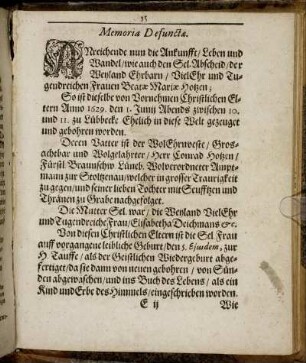 35
Memoria Defunctæ.
ANreichende nun die Ankunfft / Leben und
Wandel / wie auch den Sel. Abscheid / der
Weyland Ehrbarn / VielEhr und Tu-
gendreichen Frauen Beatæ Mariæ Hotzen;
So ist dieselbe von Vornehmen Christlichen El-
tern Anno 1629. den 1. Junij Abends zwischen 10.
und 11. zu Lübbecke Ehelich in diese Welt gezeuget
und gebohren worden.
Deren Vatter ist der WolEhrnveste / Gros-
achtbar und Wolgelahrter / Herr Conrad Hotzen /
Fürstl. Braunschw. Lüneb. Wolverordneter Ampt-
mann zur Stoltzenau / welcher in grosser Traurigkeit
zu gegen / und seiner lieben Tochter mit Seufftzen und
Thränen zu Grabe nachgefolget.
Die Mutter Sel. war / die Weyland VielEhr
und Tugendreiche Frau / Elisabetha Deichmans &c.
Von diesen Christlichen Eltern ist die Sel. Frau
auff vorgangene leibliche Geburt / den 5. Ejusdem, zur
H. Tauffe / als der Geistlichen Wiedergeburt abge-
fertiget / da sie dann von neuen gebohren / von Sün-
den abgewaschen / und ins Buch des Lebens / als ein
Kind und Erbe des Himmels / eingeschrieben worden.
E ij
Wie